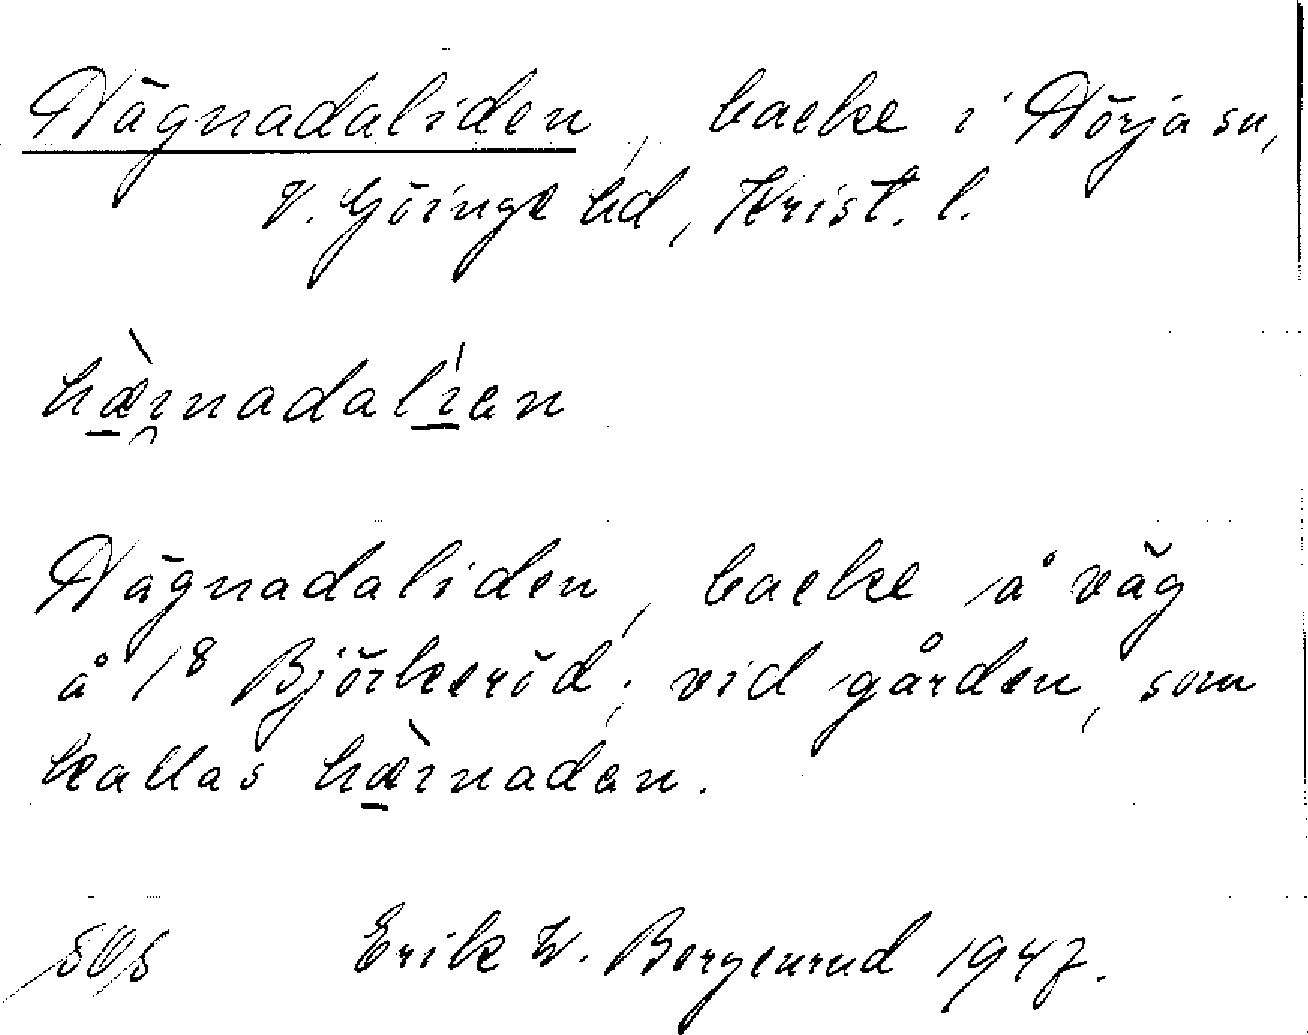 Hägnadaliden, backe i Hörja sn,
V. Göinge hd, Krist. l.
hæ̀i̯nadalíən
Hägnadaliden, backe å väg
å 1⁸ Björkeröd; vid gården, som
kallas hæ̀ınadən.
Erik W. Borgenrud 1947.